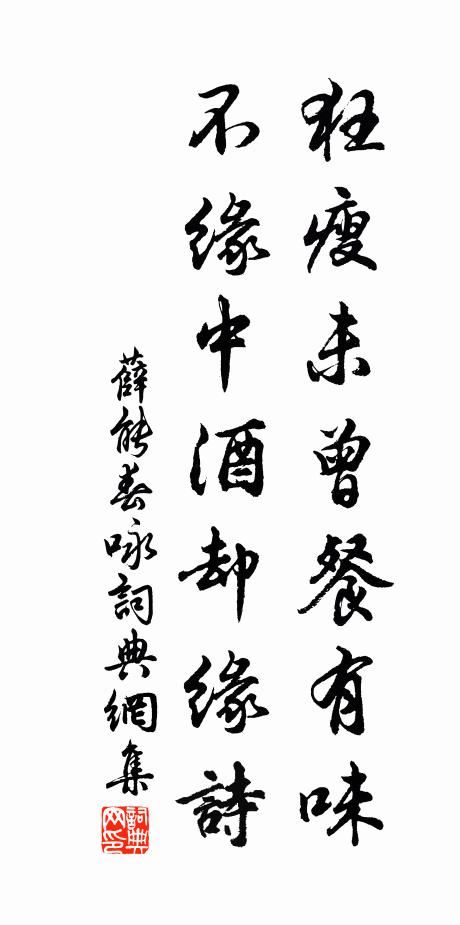 狂瘦未曾餐有味
不緣中酒却緣詩
薛能春咏詞典網集
詞典
网印